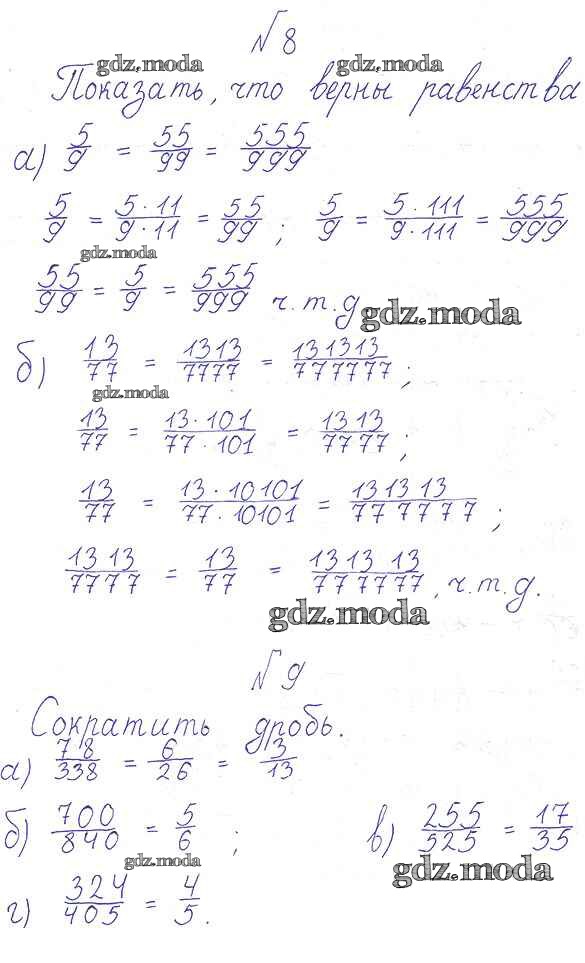 № 8
gdz.moda gdz.moda
Показать, что верны равенства
а) 5/9 = 55/99 = 555/999
5/9 = 5·11/9·11 = 55/99; 5/9 = 5·111/9·111 = 555/999
gdz.moda
55/99 = 5/9 = 555/999 ч.т.д gdz.moda
б) 13/77 = 1313/7777 = 131313/777777;
gdz.moda
13/77 = 13·101/77·101 = 1313/7777;
13/77 = 13·10101/77·10101 = 131313/777777;
1313/7777 = 13/77 = 131313/777777, ч.т.д.
gdz.moda
№ 9
Сократить дробь.
а) 78/338 = 6/26 = 3/13
б) 700/840 = 5/6; в) 255/525 = 17/35
gdz.moda gdz.moda
г) 324/405 = 4/5.